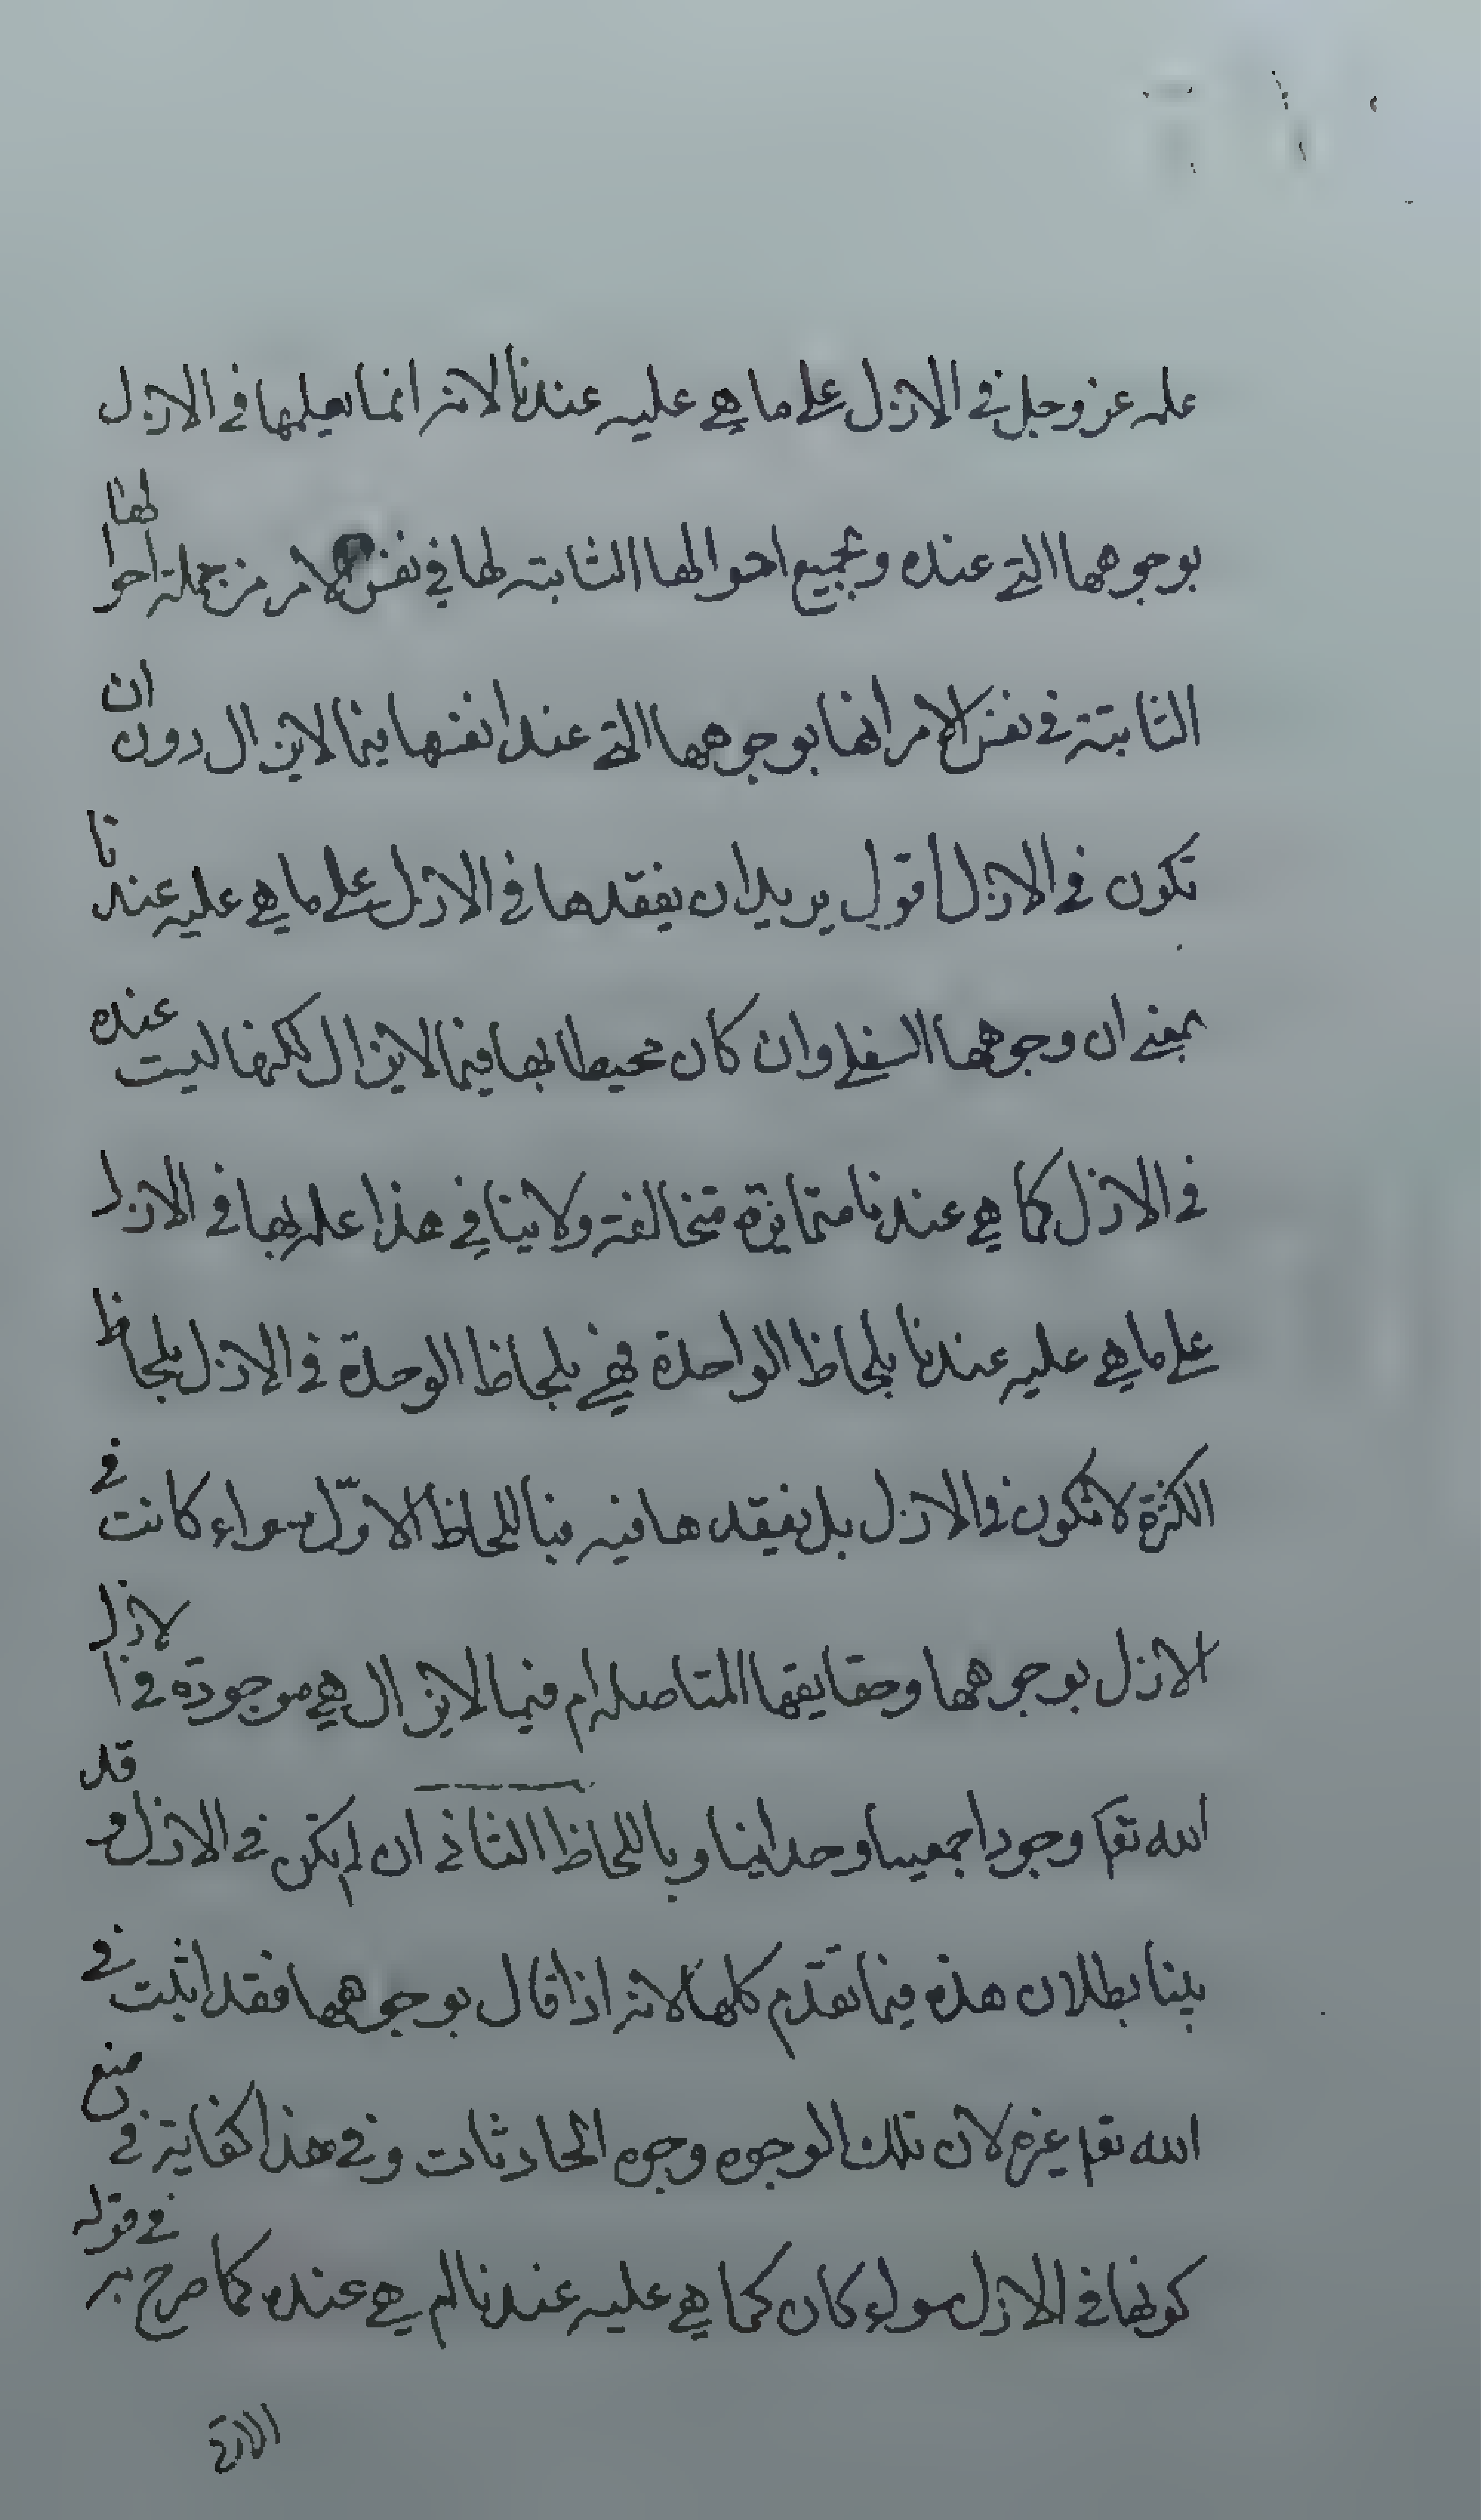 علمه عز وجل في الازل على ما هي عليه عندنا لانه انما يعلمها في الازل
بوجوهها التي عنده وبجميع احوالها الثابته لها في نفس الامر من جملة احوالها
الثابتة في نفس الامر انها بوجوهها التي عند انفسها فيما لايزال دون ان
تكون في الازل اقول يريد ان يفقدها في الازل على ما هي عليه عندنا
بمعني ان وجوهها السفلى وان كان محيطا بها فيما لايزال لكنها ليست عنده
في الازل كما هي عندنا متمايزة متخالفة ولا ينافي هذا علمه بها في الازل
على ما هي عليه عندنا بلحاظ الواحدة فهي بلحاظ الوحدة في الازل بلحاظ
الكثرة لا تكون في الازل بل يفقدها فيه فبا اللحاظ الاوّل سواء كانت في
الازل بوجوهها وحقايقها المتاصله ام فيما لايزال هي موجودة في الازل
الله تعا وجودا جمعيا وحدانيا وباللحاظ الثاني ان لم تكن في الازل وقد
بينا بطلان هذه فيما تقدم كلها لانه اذا قال بوجوهها فقد اثبت في
الله تعا غيره لان تلك الوجوه وجوه الحادثات وفي هذا كفاية في منع
كونها في الازل سواء كان كما هي عليه عندنا ام هي عنده كما صرح به في قوله
الاتي